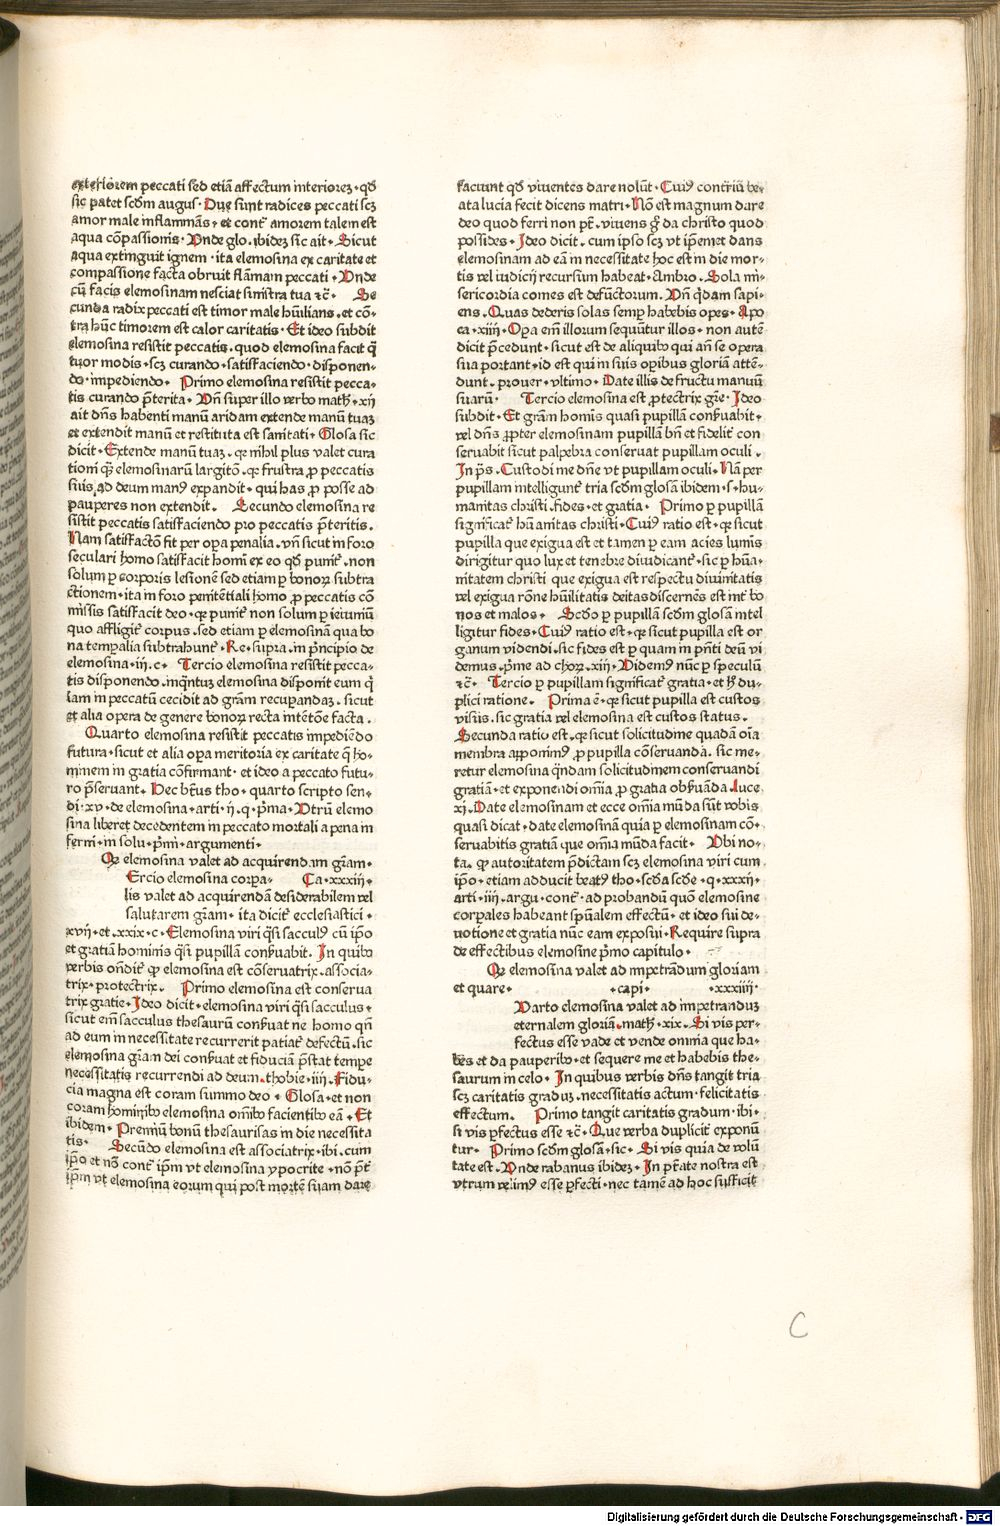 exteriorem peccati sed etiã affectum interiorez · qd̛
sic patet scd̛m augus · Due sunt radices peccati scz
amor male inflammãs · et contr̃ amorem talem est
aqua cõpassionis · Vnde glo · ibidez sic ait · Sicut
aqua extinguit ignem · ita elemosina ex caritate et
compassione facta obruit flãmam peccati · Vnde
cũ facis elemosinam nesciat sinistra tua ⁊c̃ · Se
cunda radix peccati est timor male hũilians · et cõ-
tra hũc timorem est calor caritatis · Et ideo subdit
elemosina resistit peccatis · quod elemosina facit q̃
tuor modis · scz curando · satisfaciendo · disponen-
do · impediendo · Primo elemosina resistit pecca-
tis curando p̃terita · Vñ super illo verbo math̛ · xij
ait dñs habenti manũ aridam extende manũ tuaz
et extendit manũ et restituta est sanitati · Glosa sic
dicit · Extende manũ tuaz · qꝛ nihil plus valet cura
tioni qꝫ elemosinarũ largitõ · qꝛ frustra ꝓ peccatis
suis ad deum manꝰ expandit · qui has ꝓ posse ad
pauperes non extendit · Secundo elemosina re
sistit peccatis satisfaciendo pro peccatis p̃teritis ·
Nam satisfactõ fit per opa penalia · vñ sicut in foro
seculari homo satisfacit homĩ ex eo qd̛ punit̛ · non
solum ꝑ corporis lesionẽ sed etiam ꝑ bonoꝝ subtra
ctionem · ita in foro penitẽtiali homo ꝓ peccatis cõ
missis satisfacit deo · qꝛ punit̛ non solum ꝑ ieiuniũ
quo affligit̛ corpus · sed etiam ꝑ elemosinã qua bo
na temꝑalia subtrahunt̛ · Re · supra · in p̃ncipio de
elemosina · iij · c · Tercio elemosina resistit pecca-
tis disponendo · inq̃ntuz elemosina disponit eum q̃
iam in peccatũ cecidit ad gr̃am recuꝑandaz · sicut
et alia opera de genere bonoꝝ recta intẽtõe facta ·
Quarto elemosina resistit peccatis impediẽdo
futura · sicut et alia opa meritoria ex caritate q̃ ho-
minem in gratia cõfirmant · et ideo a peccato futu-
ro p̃seruant · Hec bt̃us tho · quarto scripto sen-
di · xv · de elemosina · arti · ij · q · p̃ma · Vtrũ elemo
sina liberet decedentem in peccato mortali a pena in
ferni · in solu · p̃mi · argumenti ·
Qꝛ elemosina valet ad acquirendam gr̃am ·
Ercio elemosina corpa- Ca · xxxiij ·
lis valet ad acquirendã desiderabilem vel
salutarem gr̃am · ita dicit̛ ecclesiastici ·
xvij · et · xxix · c · Elemosina viri q̃si sacculꝰ cũ ip̃o
et gratiã hominis qͥsi pupillã conꝓuabit · In quibꝰ
verbis oñdit̛ qꝛ elemosina est cõseruatrix · associa-
trix · protectrix · Primo elemosina est conserua
trix gratie · Ideo dicit · elemosina viri qͥsi sacculus ·
sicut em̃ sacculus thesaurũ conẜuat ne homo qñ
ad eum in necessitate recurrerit patiat̛ defectũ · sic
elemosina gr̃am dei conẜuat et fiduciã p̃stat tempe
necessitatis recurrendi ad deum · thobie · iiij · Fidu-
cia magna est coram summo deo · Glosa · et non
coram hominibꝰ elemosina om̃ibꝰ facientibꝰ eã · Et
ibidem · Premiũ bonũ thesaurisas in die necessita
tis · Secũdo elemosina est associatrix · ibi · cum
ip̃o et nõ contr̃ ip̃m vt elemosina ypocrite · nõ p̃t
ip̃m vt elemosina eorum qui post mortẽ suam dare
faciunt qd̛ viuentes dare nolũt · Cuiꝰ contr̃iũ be-
ata lucia fecit dicens matri · Nõ est magnum dare
deo quod ferri non pt̃ · viuens gͦ da christo quod
possides · Ideo dicit · cum ipso scz vt ip̃emet dans
elemosinam ad eã in necessitate hoc est in die mor-
tis vel iudicij recursum habeat · Ambro · Sola mi-
sericordia comes est defũctorum · Vñ q̃dam sapi-
ens · Quas dederis solas semꝑ habebis opes · Apo
ca · xiiij · Oꝑa em̃ illorum sequũtur illos · non autẽ
dicit p̃cedunt · sicut est de aliquibꝰ qui añ se opera
sua portant · id est qui in suis oꝑibus gloriã attẽ-
dunt · prouer · vltimo · Date illis de fructu manuũ
suarũ · Tercio elemosina est ꝓtectrix gr̃e · Ideo
subdit · Et gr̃am homĩs quasi pupillã conẜuabit ·
vel dñs ꝓpter elemosinam pupillã bñ et fidelit̛ con
seruabit sicut palpebra conseruat pupillam oculi ·
In p̃s · Custodi me dñe vt pupillam oculi · Nã per
pupillam intelligunt̛ tria scd̛m glosã ibidem · s · hu-
manitas christi · fides · et gratia · Primo ꝑ pupillã
significat̛ hũanitas christi · Cuiꝰ ratio est · qꝛ sicut
pupilla que exigua est et tamen ꝑ eam acies lumĩs
dirigitur quo lux et tenebre diiudicant̛ · sic ꝑ hũa-
nitatem christi que exigua est respectu diuinitatis
vel exigua rõne hũilitatis deitas discernẽs est int̛ bo
nos et malos · Scd̛o ꝑ pupillã scd̛m glosã intel
ligitur fides · Cuiꝰ ratio est · qꝛ sicut pupilla est or
ganum videndi · sic fides est ꝑ quam in p̃nti deũ vi
demus · p̃me ad choꝝ · xiij · Videmꝰ nũc ꝑ speculũ
⁊c̃ · Tercio ꝑ pupillam significat̛ gratia · et h̛ du-
plici ratione · Prima ẽ · qꝛ sicut pupilla est custos
visus · sic gratia vel elemosina est custos status ·
Secunda ratio est · qꝛ sicut solicitudine quadã oĩa
membra apponimꝰ ꝓ pupilla cõseruanda · sic me-
retur elemosina q̃ndam solicitudinem conseruandi
gratiã · et exponendi om̃ia ꝓ gratia obẜuãda · luce
xj · Date elemosinam et ecce om̃ia mũda sũt vobis
quasi dicat · date elemosinã quia ꝑ elemosinam cõ-
seruabitis gratiã que om̃ia mũda facit · Vbi no-
ta · qꝛ autoritatem p̃dictam scz elemosina viri cum
ip̃o · etiam adducit beatꝰ tho · scd̛a scd̛e · q · xxxij ·
arti · iiij · argu · cont̛ · ad probandũ quõ elemosine
corꝑales habeant sp̃ualem effectũ · et ideo sui de-
uotione et gratia nũc eam exposui · Require supra
de effectibus elemosine p̃mo capitulo ·
Qꝛ elemosina valet ad impetrãdum gloriam
et quare · · capi · · xxxiiij ·
Varto elemosina valet ad impetranduz
eternalem gloriã · math̛ · xix · Si vis per-
fectus esse vade et vende omnia que ha-
bes et da pauperibꝰ · et sequere me et habebis the-
saurum in celo · In quibus verbis dñs tangit tria
scz caritatis graduz · necessitatis actum · felicitatis
effectum · Primo tangit caritatis gradum · ibi ·
si vis ꝑfectus esse ⁊c̃ · Que verba duplicit̛ exponũ
tur · Primo scd̛m glosã · sic · Si vis quia de volũ
tate est · Vnde rabanus ibidez · In p̃tate nostra est
vtrum velimꝰ esse ꝑfecti · nec tamẽ ad hoc sufficit
C
Digitalisierung gefördert durch die Deutsche Forschungsgemeinschaft - DFG